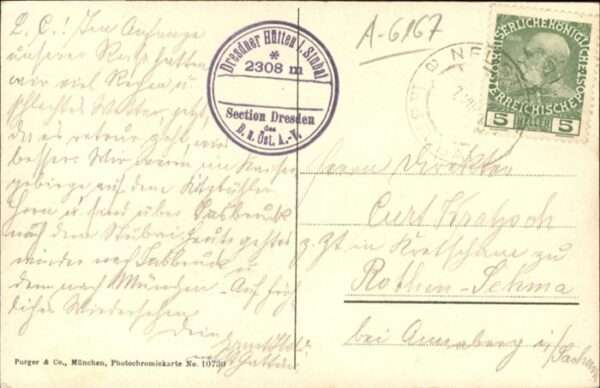 L. C.! Im Anfange
unserer Reise hatten
wir viel Regen u
schlechtes Wetter jetzt,
da es retour geht, wird
besser. Wir waren im Kaiser
gebirge auf dem Kitzbühler
Horn u sind über Innsbruck
auf dem Stubai heute geht es
wieder nach Innsbruck u
dann nach München. Auf fröh
liches Wiedersehen
Dein
Dresdner Hütten i. Stubai
*
2308 m
Section Dresden
des
D. u. Öst. A.-V.
A-6167
KAISERLICHE KÖNIGLICHE
ÖSTERREICHISCHE POST
5 HELLER 5
Herrn Direktor
Curt Kratzsch
z. Zt in Kretscham zu
Rothen-Sehma
bei Annaberg i/Sachsen
Purger & Co., München, Photochromiekarte No. 10730